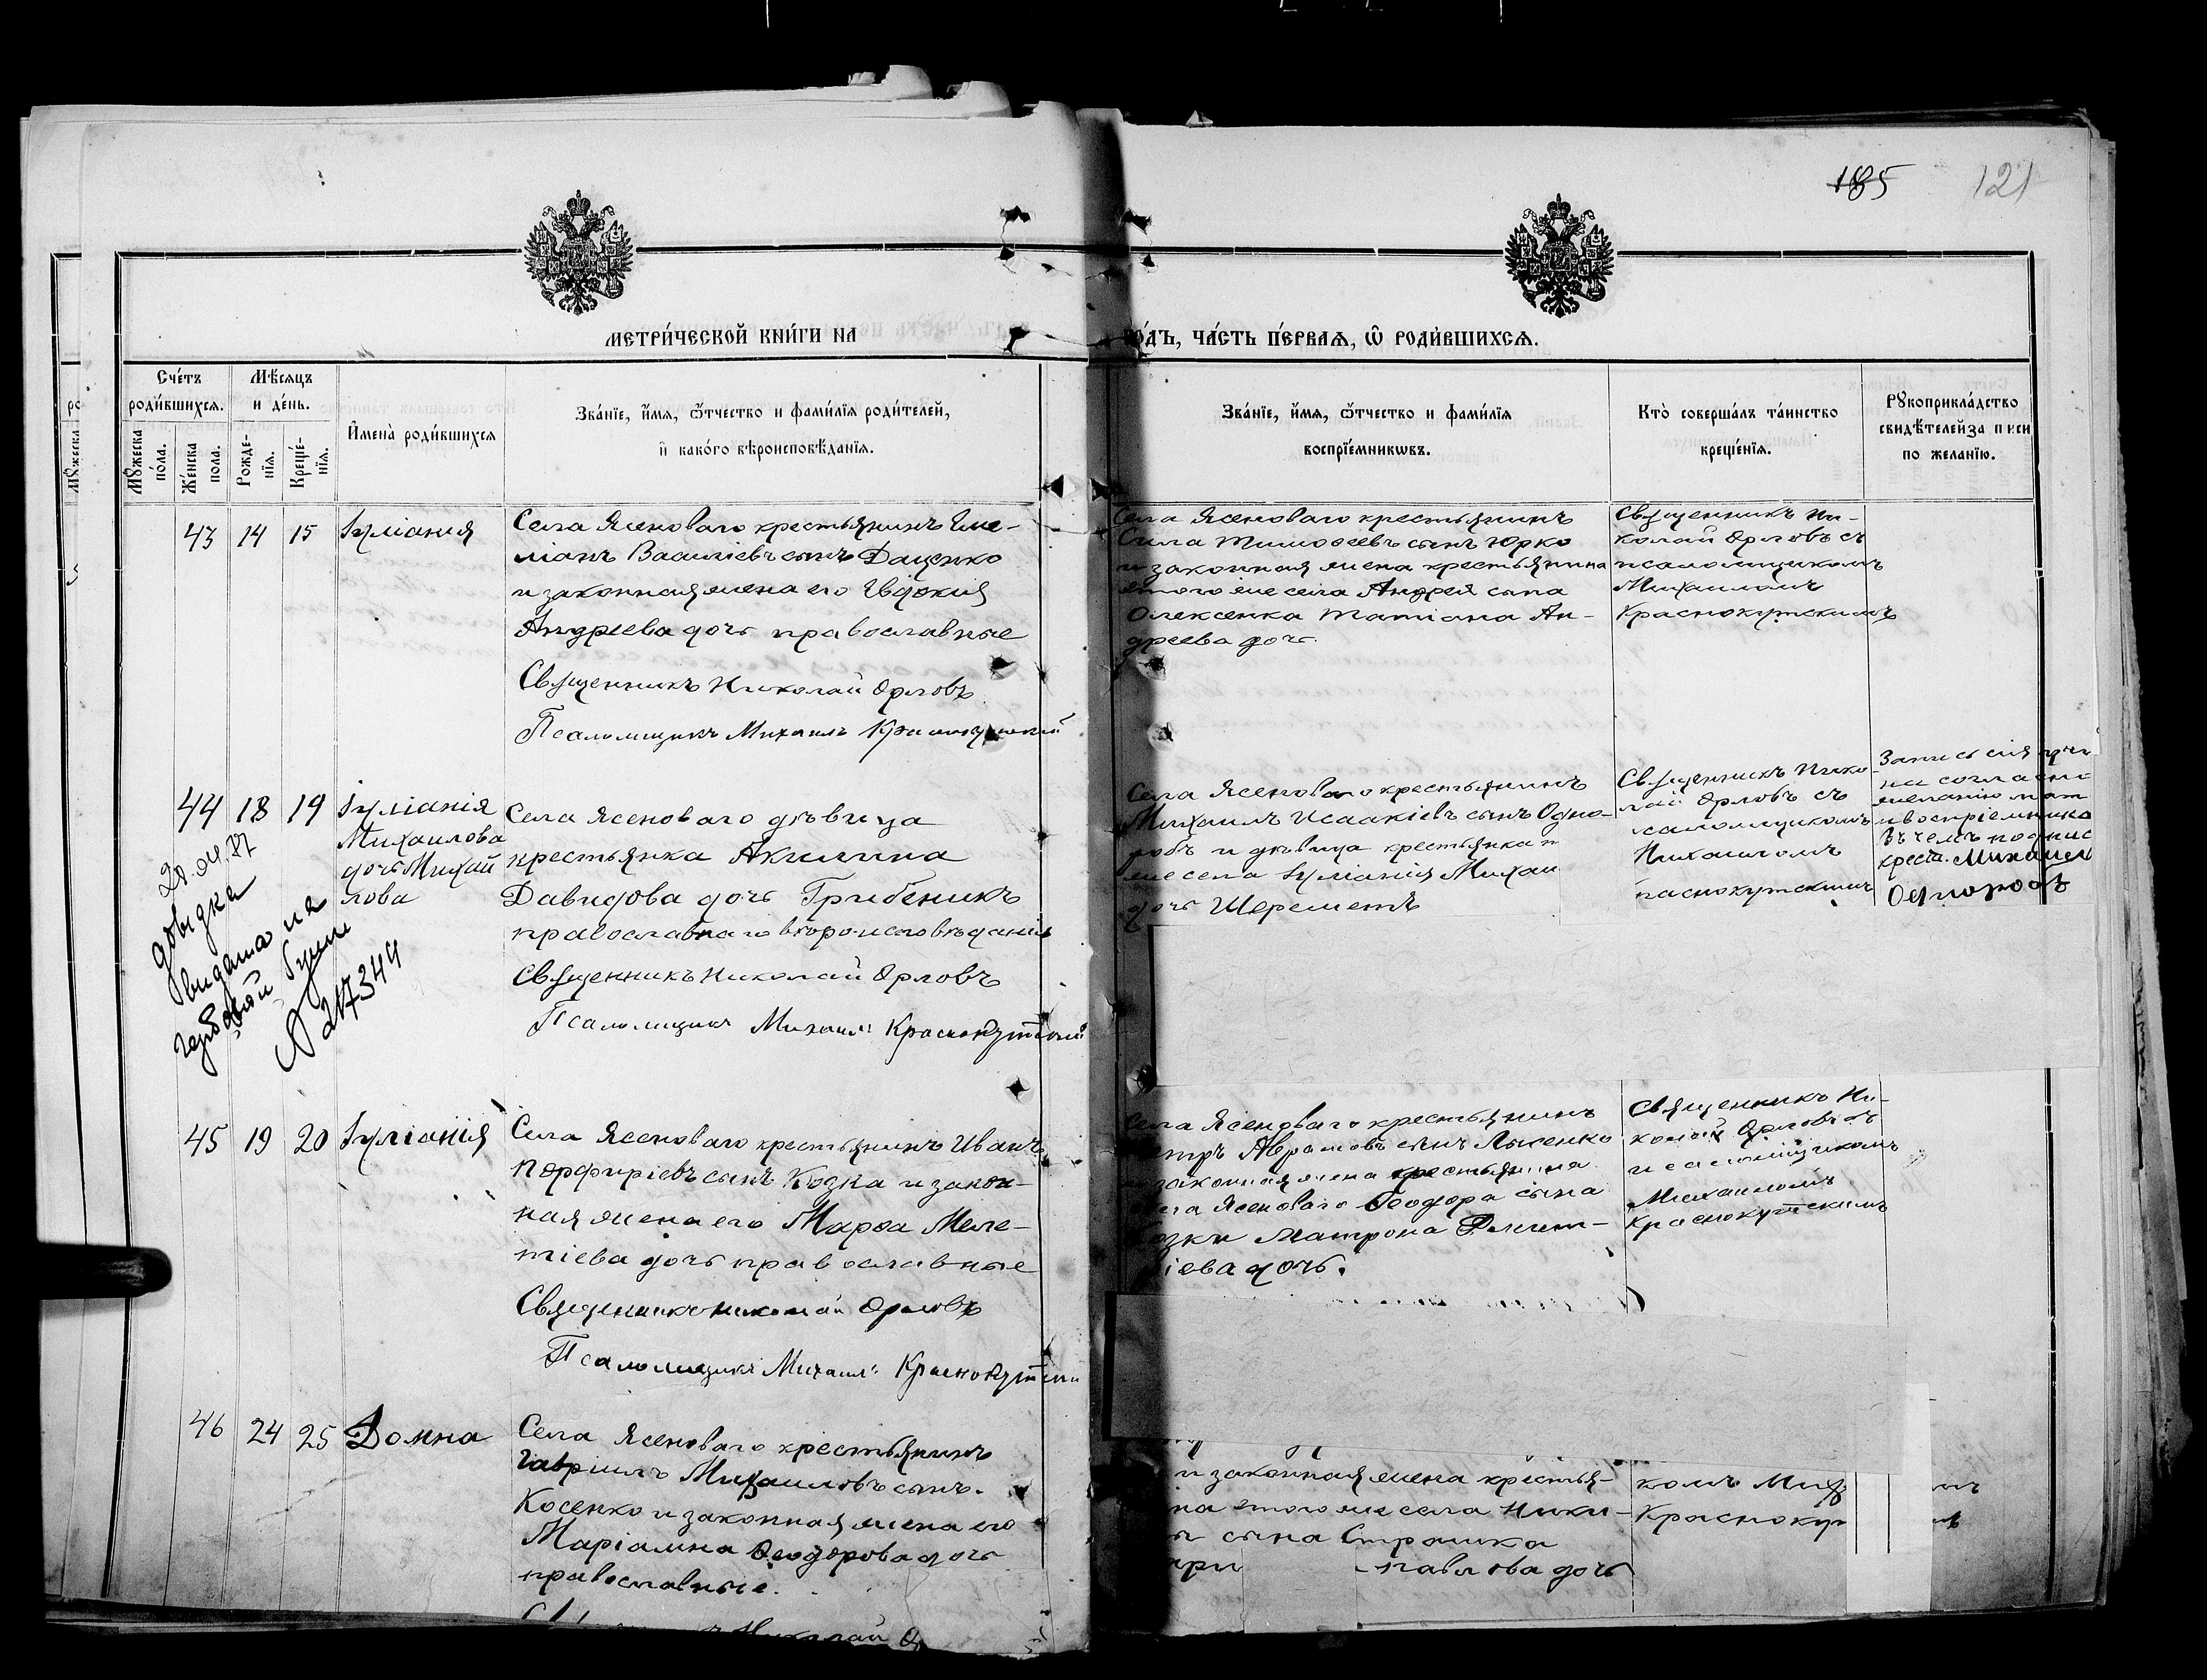 185 121
МЕТРИ́ЧЕСКОЙ КНИ́ГИ НА
ГО́ДЪ, ЧА́СТЬ ПЕ́РВАѦ, Ѡ РОДИ́ВШИХСѦ.
Сче́тъ роди́вшихсѧ.
Мѣ́сѧцъ и де́нь.
Мꙋжеска по́ла.
Же́нска пола.
Рожде́нїѧ.
Креще́нїѧ.
И҆мена̀ роди́вшихсѧ
Зва́нїе, и҆́мѧ, ѻ҆́тчество и фами́лїѧ роди́телей,
и҆ како́гѡ вѣроисповѣ́данїѧ.
Зва́нїе, и҆́мѧ, ѻ҆́тчество и фами́лїѧ
воспрїе́мникѡвъ.
Кто̀ соверша́лъ та́инство
креще́нїѧ.
Рꙋкоприкла́дство
свидѣ́телей за писи
по желанїю.
43 14 15 Іуліанія
Села Ясеноваго крестьянинъ Еме-
ліанъ Василіевъ сынъ Даценко
и законная жена его Евдокия
Андреева дочь православные
Священникъ Николай Орловъ
Псаломщикъ Михаилъ Краснокутский
Села Ясеноваго крестьянинъ
Сила Тимофеевъ сынъ Юрко
и законная жена крестьянина
этого же села Андрея сына
Олексенка Татіана Ан-
дреева дочь.
Священникъ Ни-
колай Орловъ съ
псаломщикомъ
Михаиломъ
Краснокутскимъ
44 18 19 Іуліанія
Михаилова
дочь Михай
лова
20.04.87
довідка
видата на
гербовій
№ 217344
Села Ясеноваго дѣвица
крестьянка Акилина
Давидова дочь Грибеникъ
православнаго вѣроисповѣданія
Священникъ Николай Орловъ
Псаломщикъ Михаилъ Краснокутский
Села Ясеноваго крестьянинъ
Михаилъ Исаакіевъ сынъ Одно-
робъ и дѣвица крестьянка т
же села Іуліанія Михаи
дочь Шереметъ
Священникъ Нико
лай Орловъ съ
саломщикомъ
Михаиломъ
раснокутскимъ
Запись сия учи
на согласно
желанию мат
и восприемника
въ чемъ подпис
крест. Михаил
Однороб
45 19 20 Іуліанія
Села Ясеноваго крестьянинъ Иванъ
Порфиріевъ сынъ Козка и закон-
ная жена его Марѳа Меле-
тіева дочь православные
Священникъ Николай Орловъ
Псаломщикъ Михаилъ Краснокутский
Села Ясеноваго крестьянинъ
етръ Аврамовъ сынъ Лысенко
законная жена крестьянина
ела Ясеноваго Ѳеодора сына
озки Матрона Дмит-
іева дочь.
Священникъ Ни-
колай Орловъ съ
псаломщикомъ
Михаиломъ
Краснокутскимъ
46 24 25 Домна
Села Ясеноваго крестьянинъ
Гавріилъ Михаиловъ сынъ
Косенко и законная жена его
Маріамна Ѳеодорова дочь
православные.
Николай О
и законная жена крестья-
на этого же села Ники-
ы сына Страшка
ари павлова дочь
комъ Мих
Краснокут